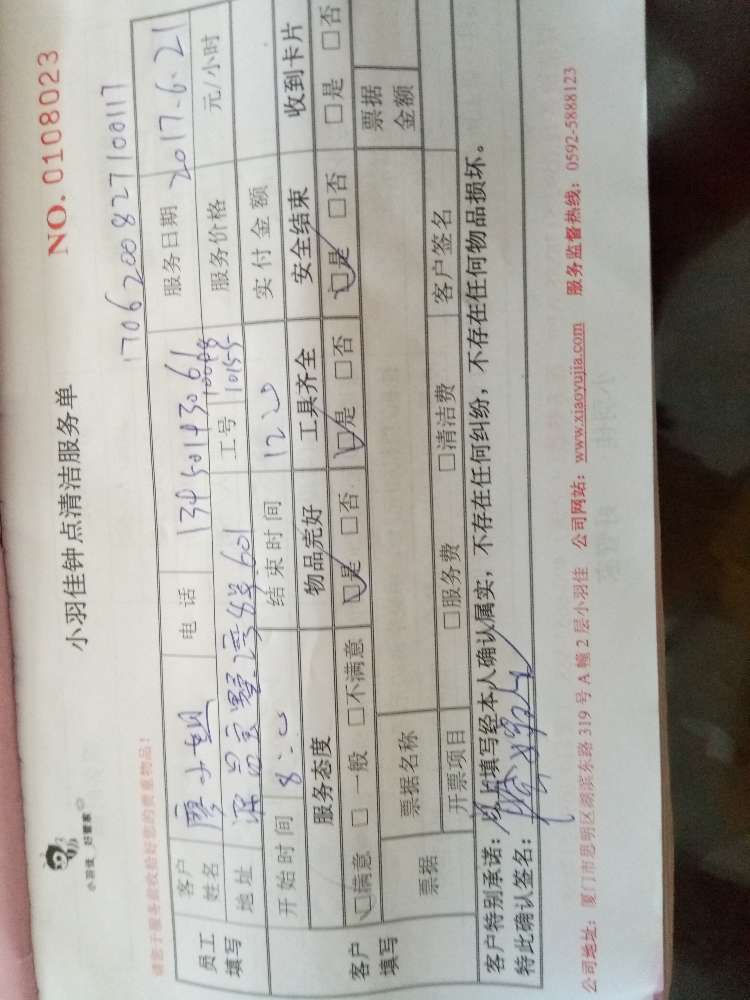 小羽佳 好管家
小羽佳钟点清洁服务单
NO. 0108023
请您于服务前收拾好您的贵重物品!
1706200827100117
员工填写 客户姓名 小姐 电话 13450143061 服务日期 2017.6.21
地址 2号 601 工号 10155 服务价格 元/小时
开始时间 8:00 结束时间 12:00 实付金额
客户填写 服务态度 物品完好 工具齐全 安全结束 收到卡片
☑满意 □一般 □不满意 ☑是 □否 ☑是 □否 ☑是 □否 □是 □否
票据 票据名称 票据金额
开票项目 □服务费 □清洁费 客户签名
客户特别承诺:以上填写经本人确认属实,不存在任何纠纷,不存在任何物品损坏。
特此确认签名:
公司地址:厦门市思明区湖滨东路 319 号 A 幢 2 层小羽佳 公司网站:www.xiaoyujia.com 服务监督热线:0592-5888123